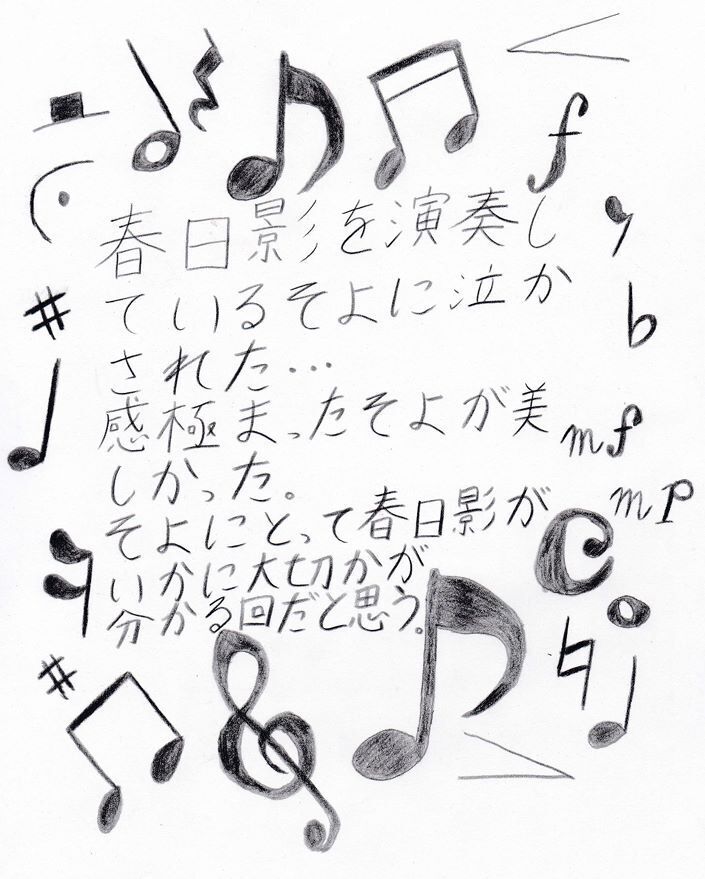 f
春日影を演奏し
ているそよに泣か
された…
感極まったそよが美
しかった。
mf
mp
そよにとって春日影が
いかに大切かが
分かる回だと思う。